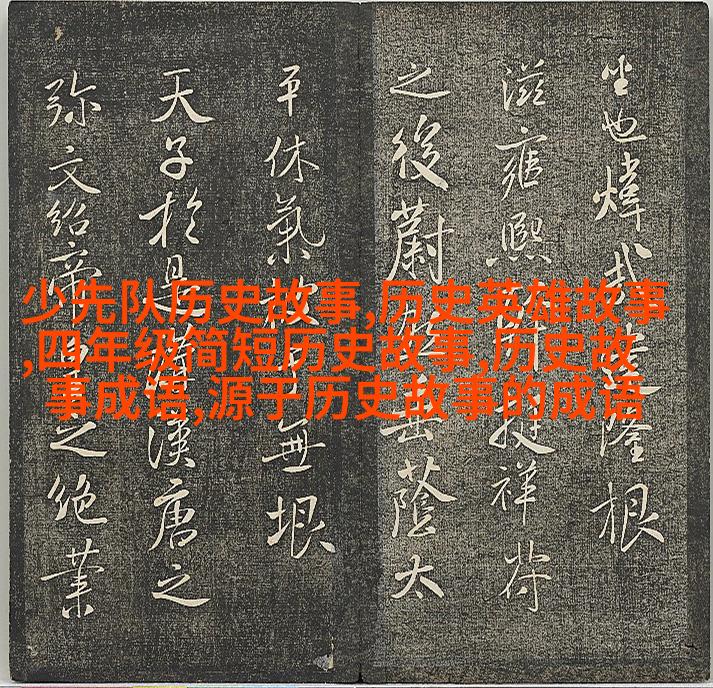 少先队历史故事,历史英雄故事
,四年级简短历史故事,历史故
事成语,源于历史故事的成语
也煒哉隆根
滋雍熙挺祥符
之後蔚蔭太
平休氣無垠
天子於是漢唐之
弥文紹帝之絕業